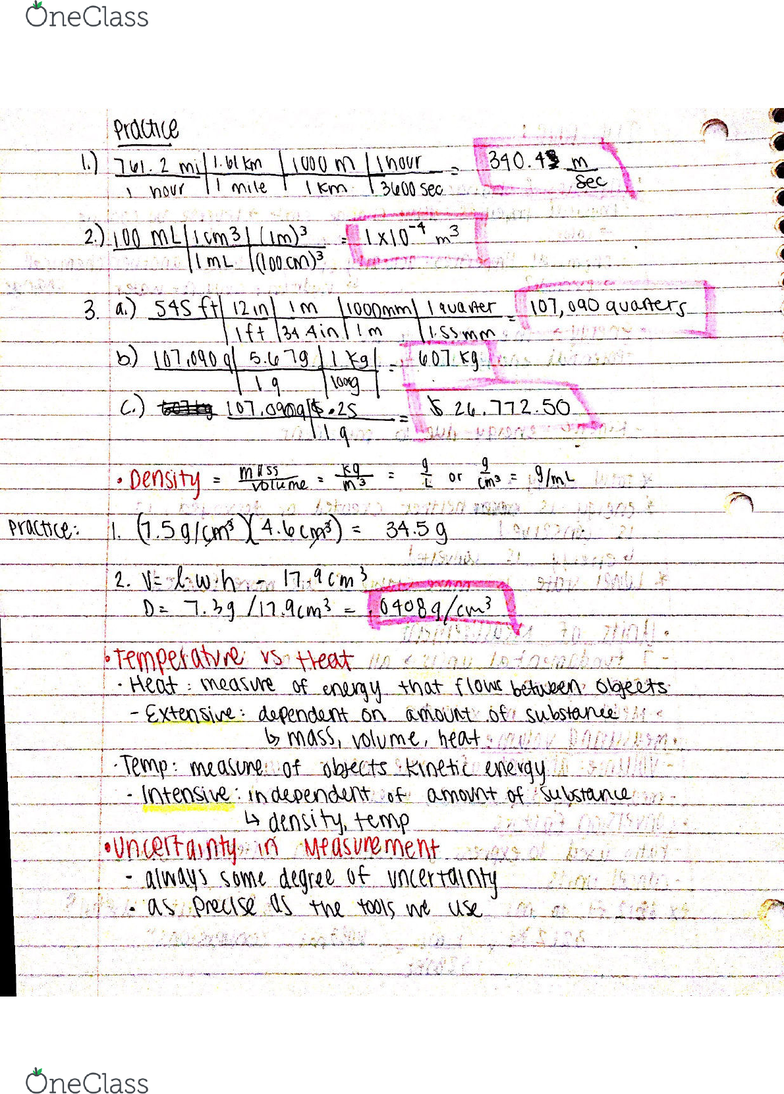 OneClass
Practice
1.) 761.2 mi | 1.61 km | 1000 m | 1 hour = 340.4 m
1 hour | 1 mile | 1 km | 3600 sec sec
2.) 100 mL | 1 cm3 | (1m)³ = 1x10⁻⁴ m³
| 1 mL | (100 cm)³
3. a.) 545 ft | 12 in | 1 m | 1000mm | 1 quarter = 107,090 quarters
| 1 ft | 39.4 in | 1 m | 1.55 mm
b) 107,090 q | 5.67g | 1 kg | = 607 kg
| 1 q | 1000g
c.) 107,090q | $.25 = $ 26,772.50
| 1 q
• Density = mass/volume = kg/m³ = g/L or g/cm³ = g/mL
Practice: 1. (7.5g/cm³)(4.6cm³) = 34.5g
2. V= l·w·h = 17.9cm³
D= 7.3g/17.9cm³ = .0408g/cm³
• Temperature vs Heat
• Heat: measure of energy that flows between objects
- Extensive: dependent on amount of substance
↳ mass, volume, heat
• Temp: measure of objects kinetic energy
- Intensive: independent of amount of substance
↳ density, temp
• Uncertainty in Measurement
- always some degree of uncertainty
- as precise as the tools we use
OneClass